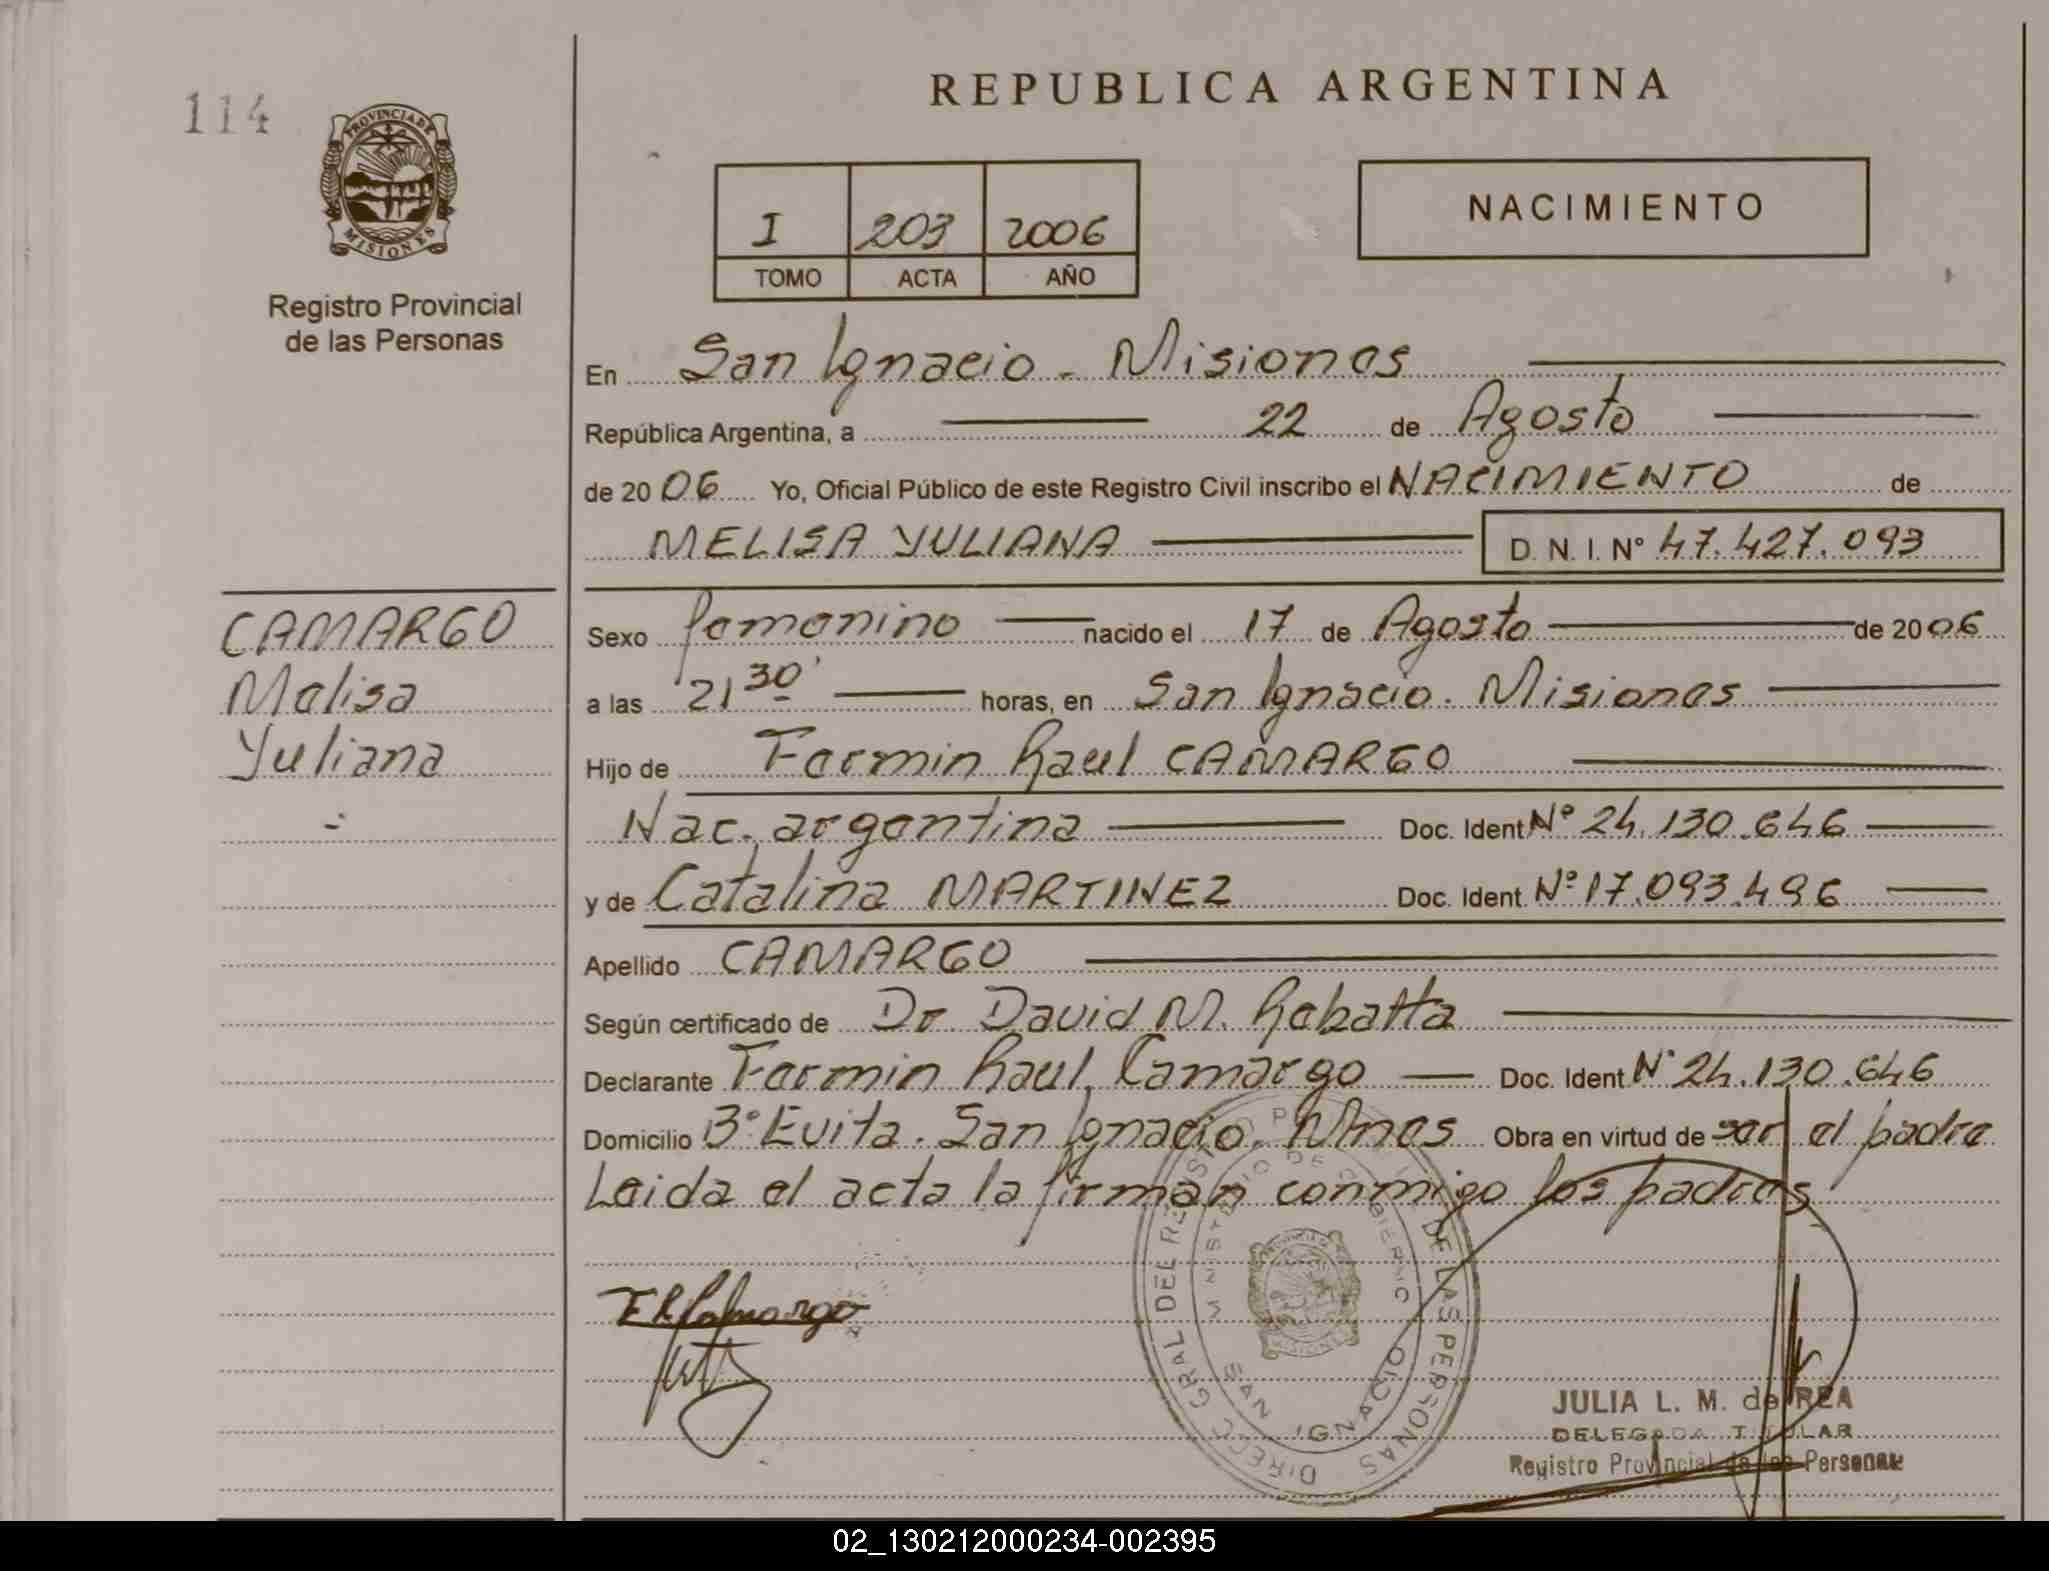 114
PROVINCIA DE
MISIONES
Registro Provincial
de las Personas
REPUBLICA ARGENTINA
I 203 2006
TOMO ACTA AÑO
NACIMIENTO
En San Ignacio - Misiones
República Argentina, a 22 de Agosto
de 20 06 Yo, Oficial Público de este Registro Civil inscribo el NACIMIENTO de
MELISA YULIANA D. N. I. N° 47.427.093
CAMARGO
Melisa
Yuliana
Sexo femenino nacido el 17 de Agosto de 20 06
a las 21 30' horas, en San Ignacio. Misiones
Hijo de Fermin Raul CAMARGO
Nac. argentina Doc. Ident N° 24.130.646
y de Catalina MARTINEZ Doc. Ident. N° 17.093.496
Apellido CAMARGO
Según certificado de Dr David M. Rebatta
Declarante Fermin Raul Camargo Doc. Ident N° 24.130.646
Domicilio B° Evita. San Ignacio. Mnes Obra en virtud de ser el padre
Leida el acta la firman conmigo los padres
F R Camargo
DIRECC GRAL DEL REGISTRO P DE LAS PERSONAS
MINISTERIO DE GOBIERNO
SAN IGNACIO
MISIONES
JULIA L. M. de REA
DELEGADA TITULAR
Registro Provincial de las Personas
02_130212000234-002395